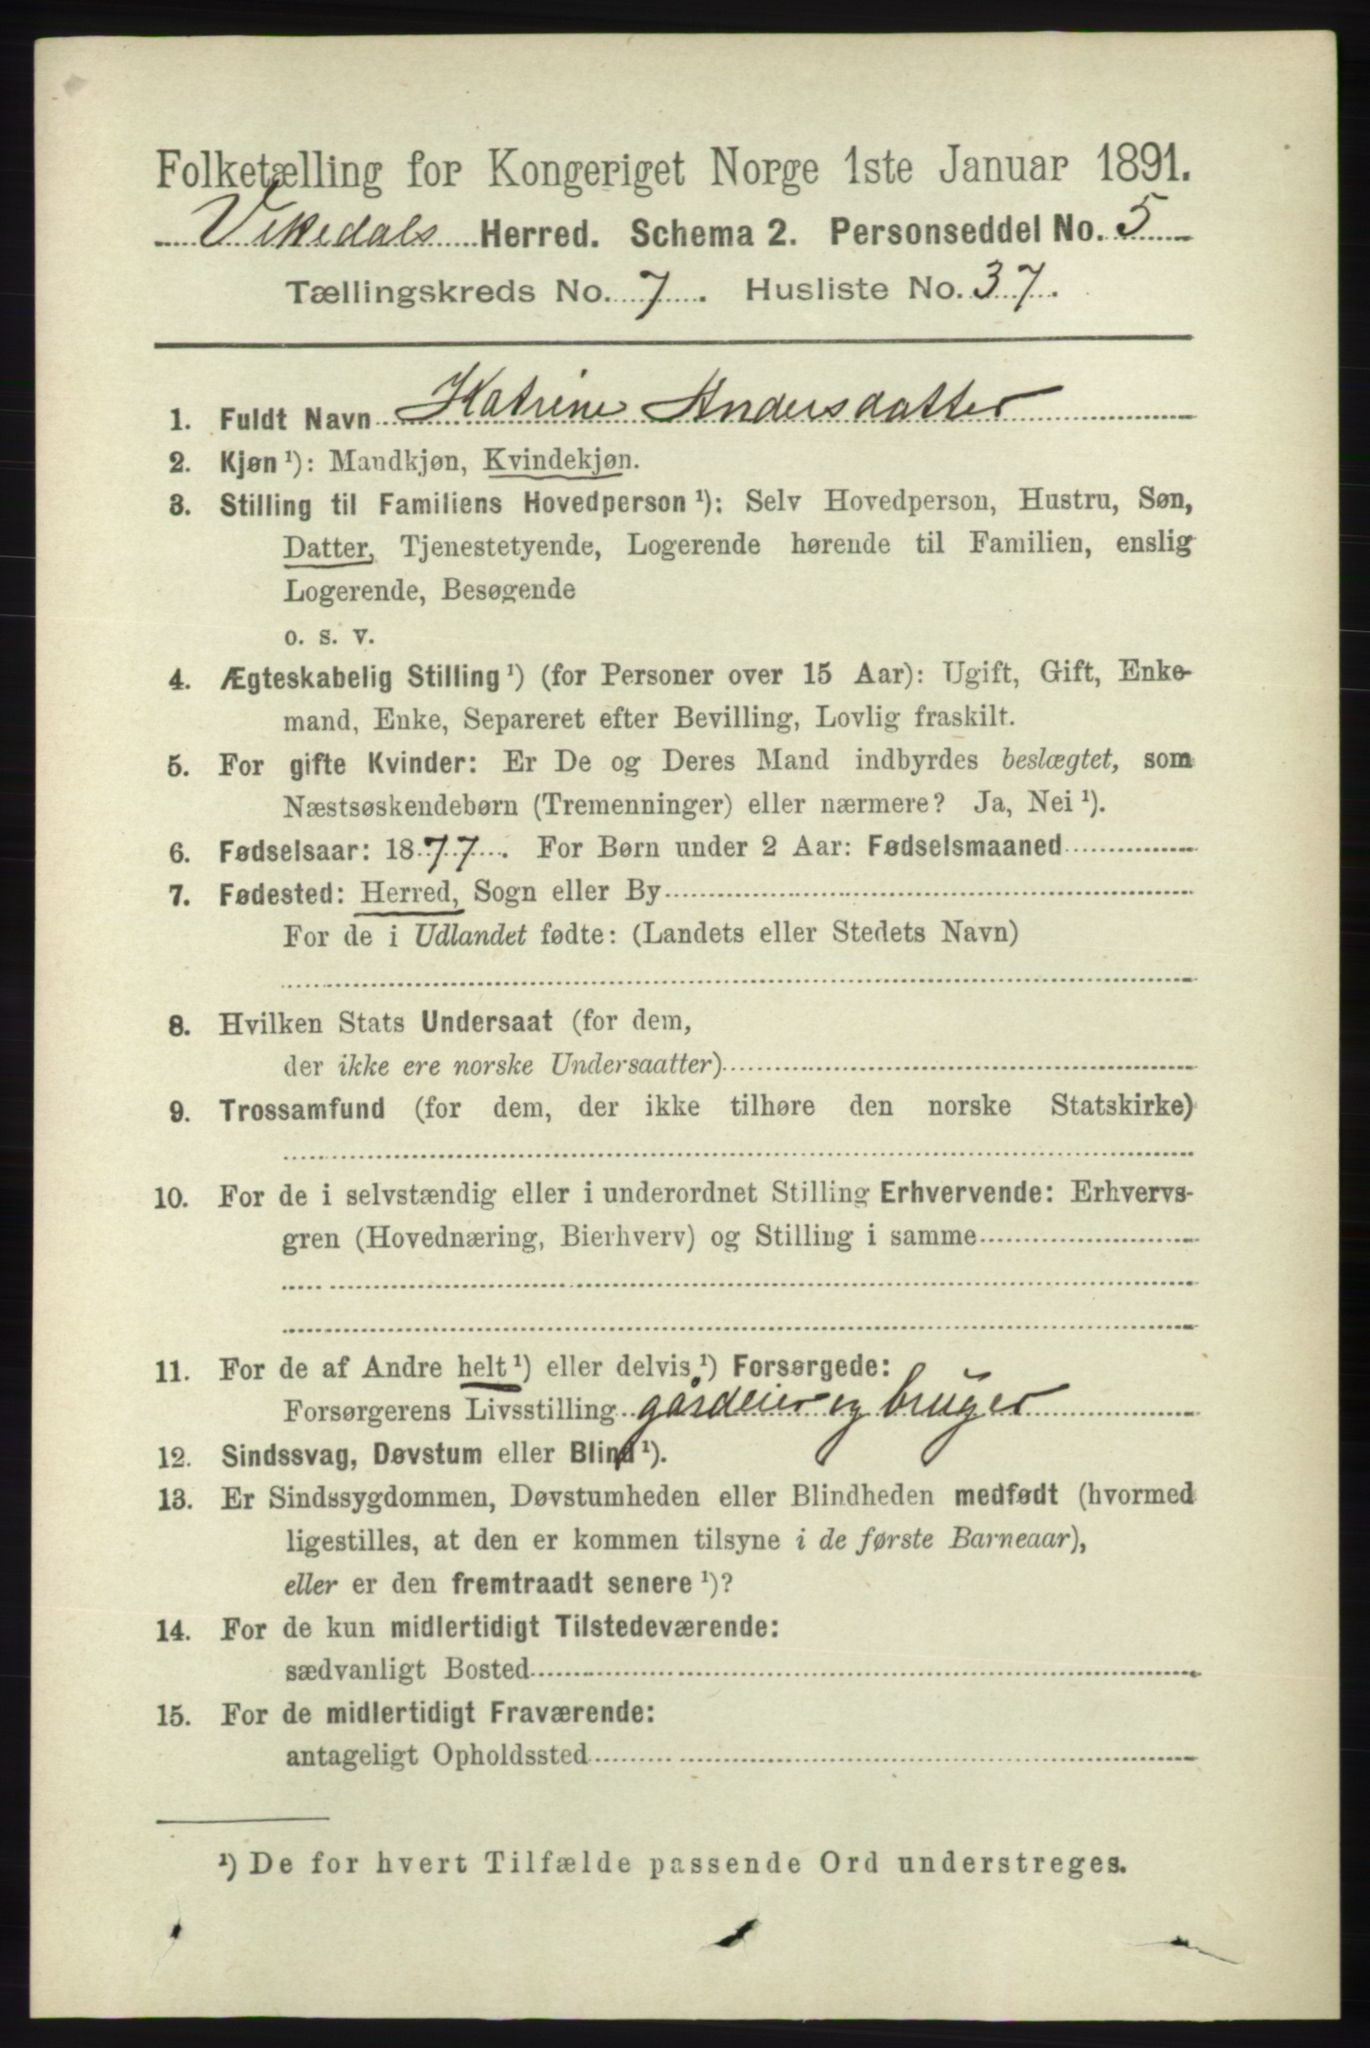 Folketælling for Kongeriget Norge 1ste Januar 1891.
Vikedals Herred. Schema 2. Personseddel No. 5
Tællingskreds No. 7. Husliste No. 37.
1. Fuldt Navn Katrine Andersdatter
2. Kjøn¹): Mandkjøn, Kvindekjøn.
3. Stilling til Familiens Hovedperson¹): Selv Hovedperson, Hustru, Søn,
Datter, Tjenestetyende, Logerende hørende til Familien, enslig
Logerende, Besøgende
o. s. v.
4. Ægteskabelig Stilling¹) (for Personer over 15 Aar): Ugift, Gift, Enke-
mand, Enke, Separeret efter Bevilling, Lovlig fraskilt.
5. For gifte Kvinder: Er De og Deres Mand indbyrdes beslægtet, som
Næstsøskendebørn (Tremenninger) eller nærmere? Ja, Nei¹).
6. Fødselsaar: 1877. For Børn under 2 Aar: Fødselsmaaned
7. Fødested: Herred, Sogn eller By
For de i Udlandet fødte: (Landets eller Stedets Navn)
8. Hvilken Stats Undersaat (for dem,
der ikke ere norske Undersaatter)
9. Trossamfund (for dem, der ikke tilhøre den norske Statskirke)
10. For de i selvstændig eller i underordnet Stilling Erhvervende: Erhvervs-
gren (Hovednæring, Bierhverv) og Stilling i samme
11. For de af Andre helt¹) eller delvis¹) Forsørgede:
Forsørgerens Livsstilling gårdeier og bruger
12. Sindssvag, Døvstum eller Blind¹).
13. Er Sindssygdommen, Døvstumheden eller Blindheden medfødt (hvormed
ligestilles, at den er kommen tilsyne i de første Barneaar),
eller er den fremtraadt senere¹)?
14. For de kun midlertidigt Tilstedeværende:
sædvanligt Bosted
15. For de midlertidigt Fraværende:
antageligt Opholdssted
¹) De for hvert Tilfælde passende Ord understreges.